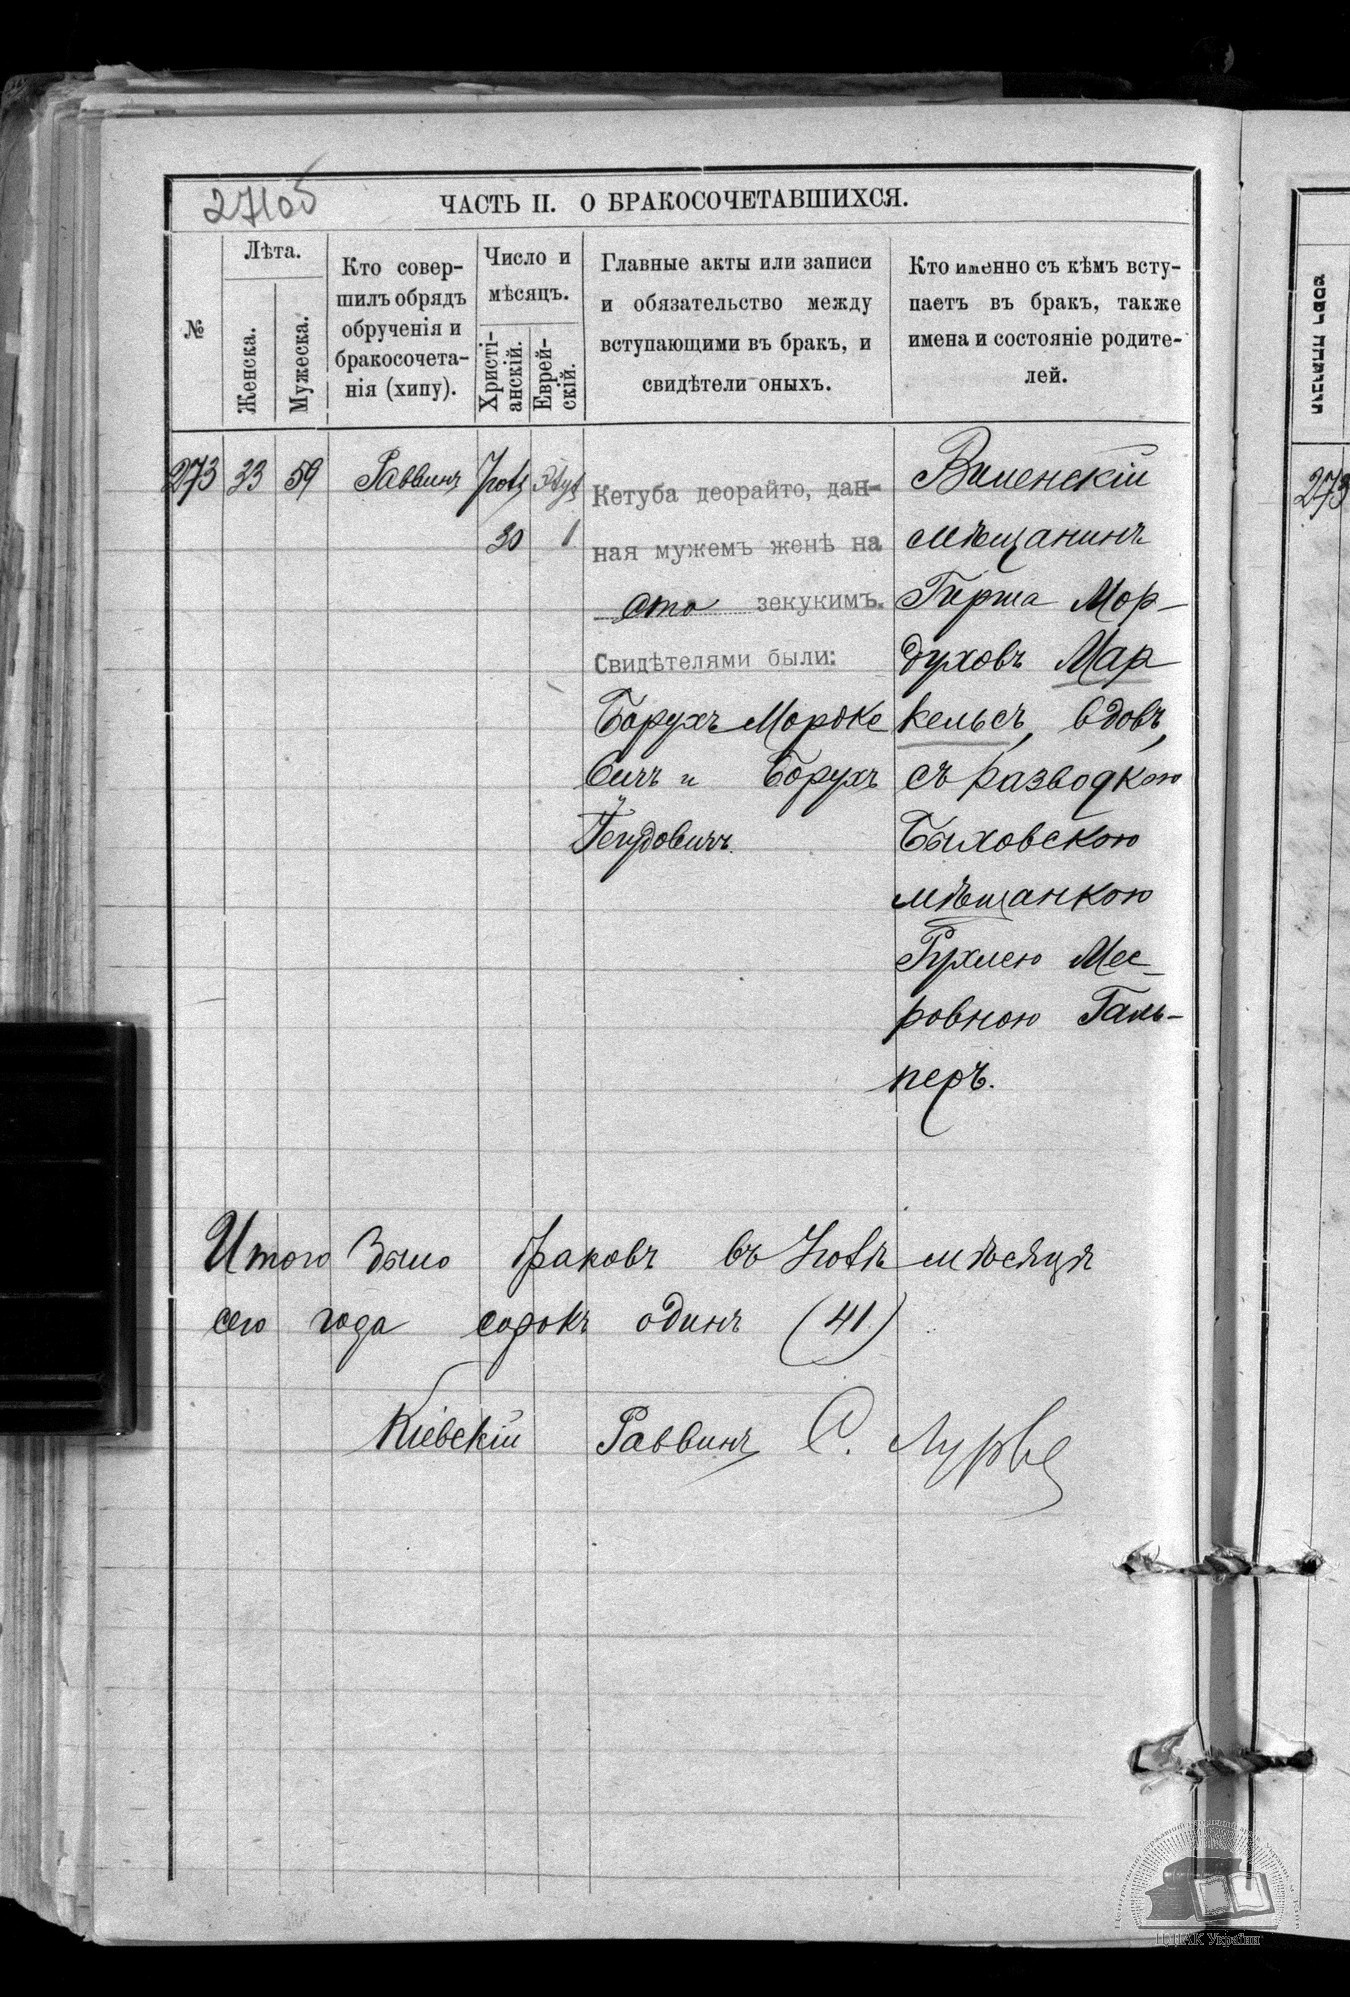 27105
ЧАСТЬ II. О БРАКОСОЧЕТАВШИХСЯ.
№
Лѣта.
Женска.
Мужеска.
Кто совер-
шилъ обрядъ
обрученія и
бракосочета-
нія (хипу).
Число и
мѣсяцъ.
Христі-
анскій.
Еврей-
скій.
Главные акты или записи
и обязательство между
вступающими въ бракъ, и
свидѣтели оныхъ.
Кто именно съ кѣмъ всту-
паетъ въ бракъ, также
имена и состояніе родите-
лей.
273 33 59 Раввинъ
30 1
Кетуба деорайто, дан-
ная мужемъ женѣ на
сто зекукимъ.
Свидѣтелями были:
Борухъ Мордко
вичъ и Борухъ
Іегудовичъ.
Виленскій
мѣщанинъ
Гирша Мор-
духовъ Мар
кельсъ, вдовъ,
съ разводкою
Быховскою
мѣщанкою
Рухлею Мее-
ровною Галь-
перъ.
Итого было браковъ въ Іюлѣ мѣсяцѣ
сего года сорокъ одинъ (41)
Кіевскій Раввинъ С. Лурье
273
ЦДІАК України